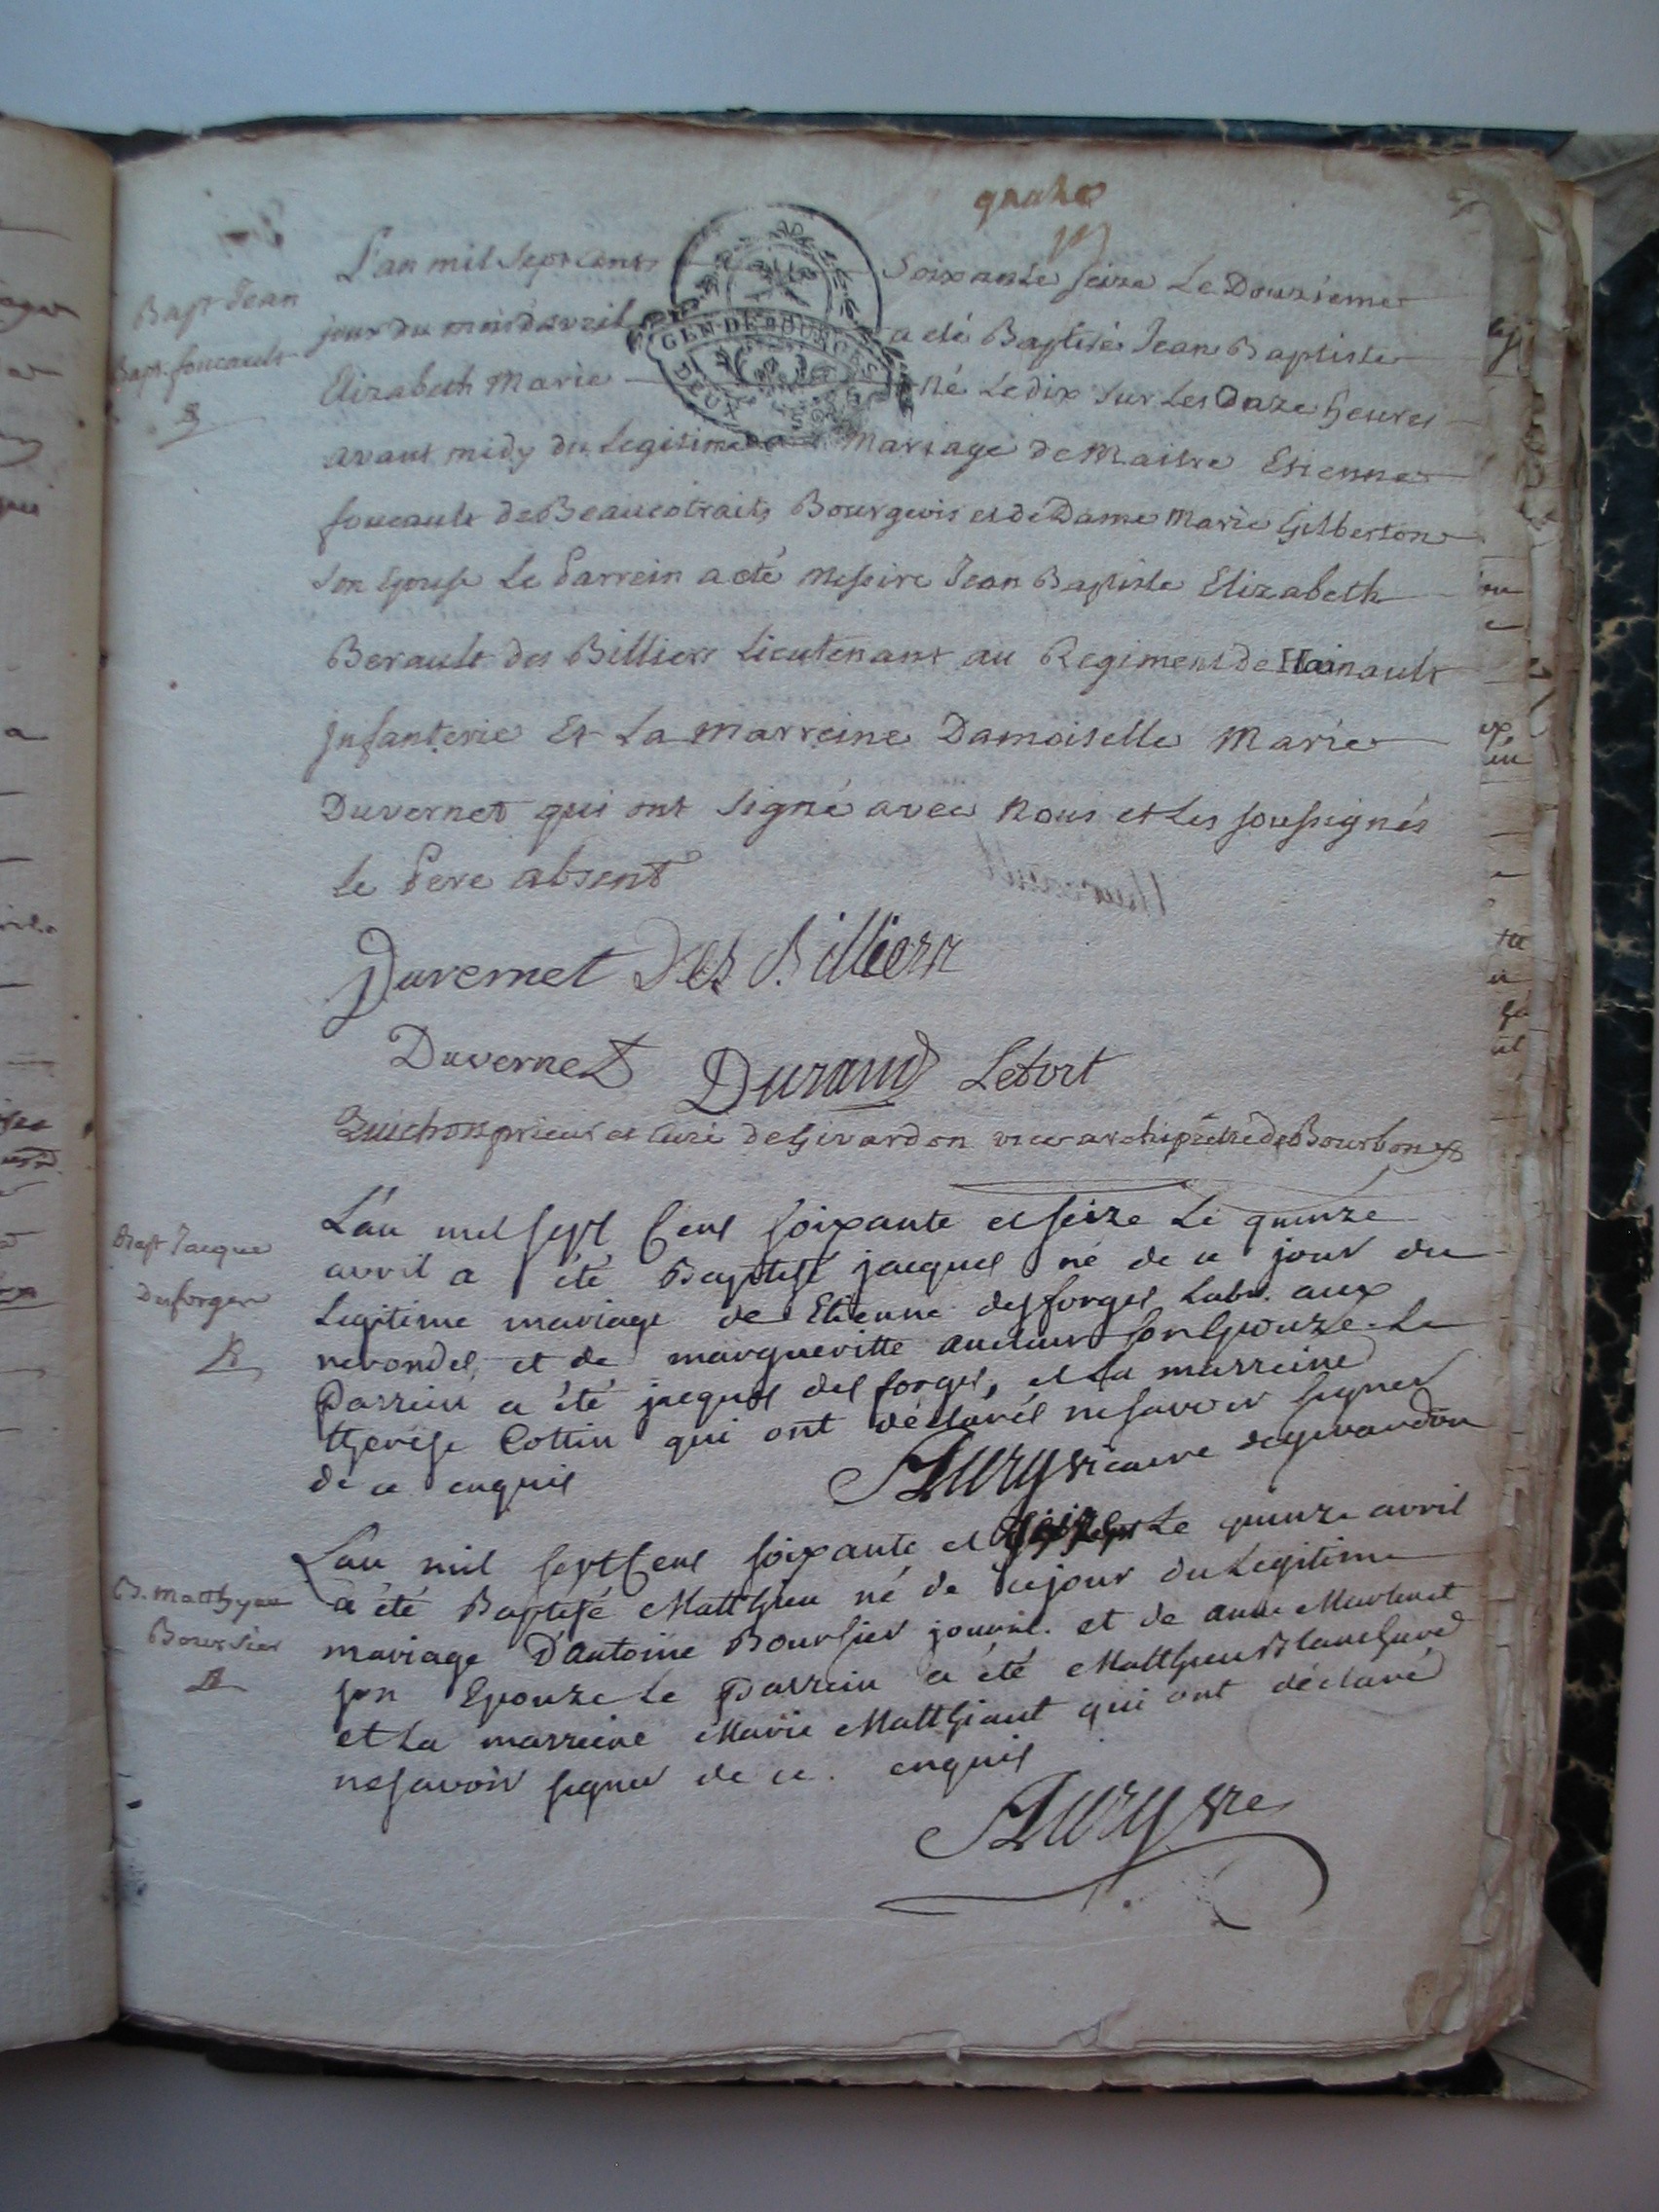 quatre
L'an mil Sept cents Soixante seize Le Douzieme
Bapt Jean
Bapt. foucault
jour du mois d'avril a eté Baptisé Jean Baptiste
Elizabeth Marie né Le dix sur Les Onze heures
GEN DE BOURGES
DEUX
avant midy du Legitime Mariage de Maitre Etienne
foucault de Beaucotraits Bourgeois et de Dame Marie Gilberton
son Epouse Le Parrein a eté Messire Jean Baptiste Elizabeth
Berault des Billiers Lieutenant au Regiment de Hainault
jnfanterie Et La Marreine Damoiselle Marie
Duvernet qui ont signé avec Nous et Les soussignés
Le Pere absent
Duvernet Des Billiers
Duvernet Durand Lefort
prieur et Curé de Givardon vice archiprêtré de Bourbon
L'an mil sept Cent soixante et seize Le quinze
Bapt Jacque
Desforges
avril a été Baptisé jacques né de ce jour du
Legitime mariage de Etienne desforges Labr. aux
et de margueritte son Epouze Le
Parrein a été jacques des forges, et La marreine
therese Cottin qui ont déclarés ne savoir signer
de ce enquis Aury vicaire de givardon
L'an mil sept Cent soixante et Le quinze avril
B. Matthyeu
Boursier
a été Baptisé Matthieu né de ce jour du Legitime
mariage D'Antoine Boursier journ. et de anne Martinet
son Epouze Le Parrein a été Matthieu Blanchard
et La marreine Marie Matthiaut qui ont déclaré
ne savoir signer de ce. enquis
Aury vre